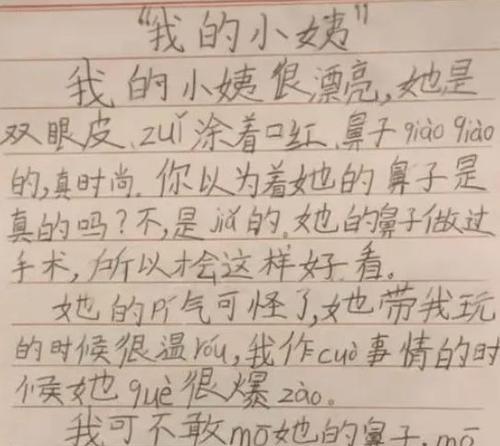 “我的小姨”
我的小姨很漂亮,她是
双眼皮、zuǐ涂着口红、鼻子qiào qiào
的,真时尚.你以为着她的鼻子是
真的吗?不,是jiǎ的.她的鼻子做过
手术,所以才会这样好看。
她的pí气可怪了,她带我玩
的时候很温róu,我作cuò事情的时
候她què很爆zào。
我可不敢mō她的鼻子,mō